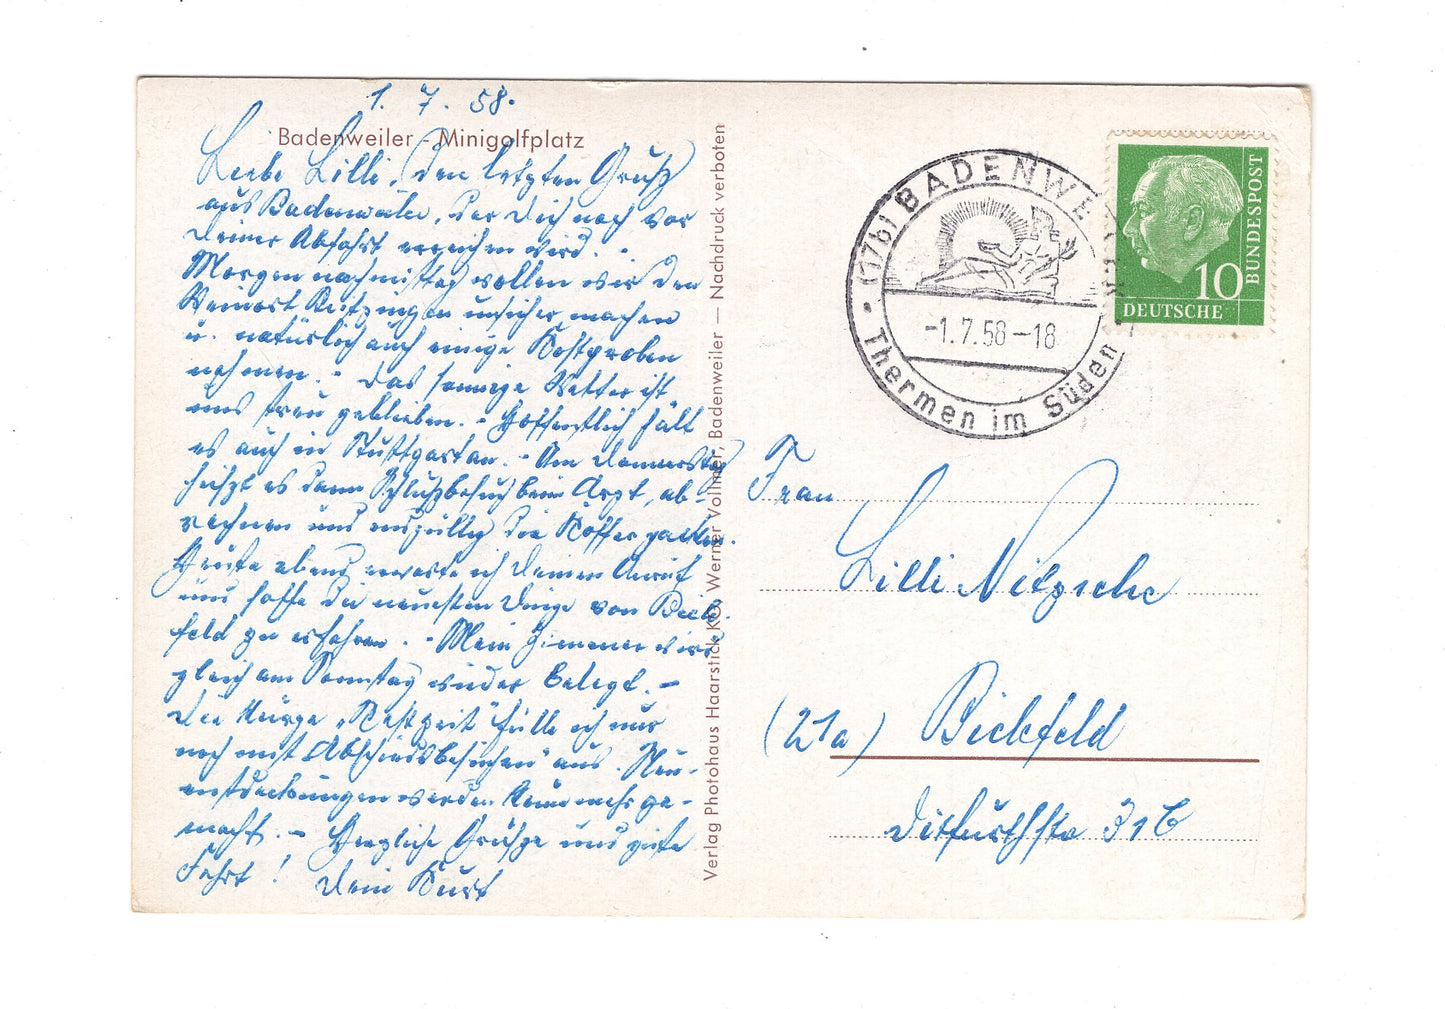 1. 7. 58.
Badenweiler - Minigolfplatz
Liebe Lilli, den letzten Gruß
aus Badenweiler, der Dich noch vor
Deiner Abfahrt erreichen wird. -
Morgen nachmittag wollen wir den
Weinort unsicher machen
u. natürlich auch einige Kostproben
nehmen. - Das sonnige Wetter ist
uns treu geblieben. - Hoffentlich hält
es auch in Stuttgart an. - Am Donnerstag
heißt es dann Schlußbesuch beim Arzt, ab-
rechnen und endgültig die Koffer packen.
Heute abend erwarte ich Deinen Anruf
und hoffe die neuesten Dinge von Biele-
feld zu erfahren. - Mein Zimmer wird
gleich am Sonntag wieder belegt. -
Die kurze "Restzeit" fülle ich nur
noch mit "Abschiedsbesuchen" aus. Neu-
entdeckungen werden kaum mehr ge-
macht. - Herzliche Grüße und gute
Fahrt! Dein Kurt
Verlag Photohaus Haarstick KG, Werner Vollmer, Badenweiler — Nachdruck verboten
(17b) BADENWE
-1.7.58-18
Thermen im Süden
10
DEUTSCHE
BUNDESPOST
Frau
Lilli Nitzsche
(21a) Bielefeld
Ditfurthstr. 31b